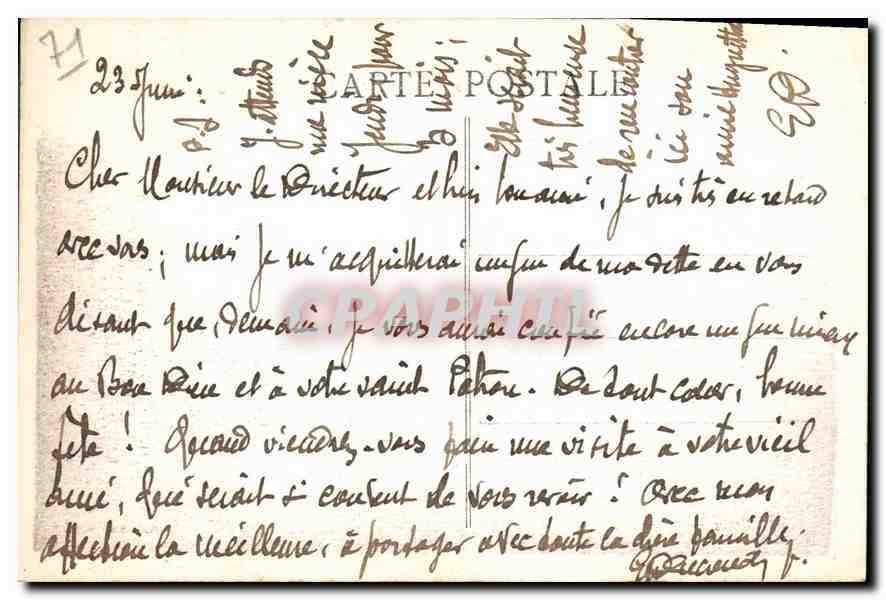 71
CARTE POSTALE
23 Juin :
Cher Monsieur le Directeur et bien bon ami, je suis très en retard
avec vous ; mais je m'acquitterai un peu de ma dette en vous
disant que, demain, je vous aurai confié encore un peu mieux
au Bon Dieu et à votre saint Patron. De tout cœur, bonne
fête ! Quand viendrez-vous faire une visite à votre vieil
ami, qui serait si content de vous revoir ? Avec mon
affection la meilleure, à partager avec toute la chère famille.
P.S
J'attends
ma nièce
Jeudi pour
3 mois ;
Elle serait
très heureuse
de rencontrer
ici son
amie
ED.
CPAPHIL